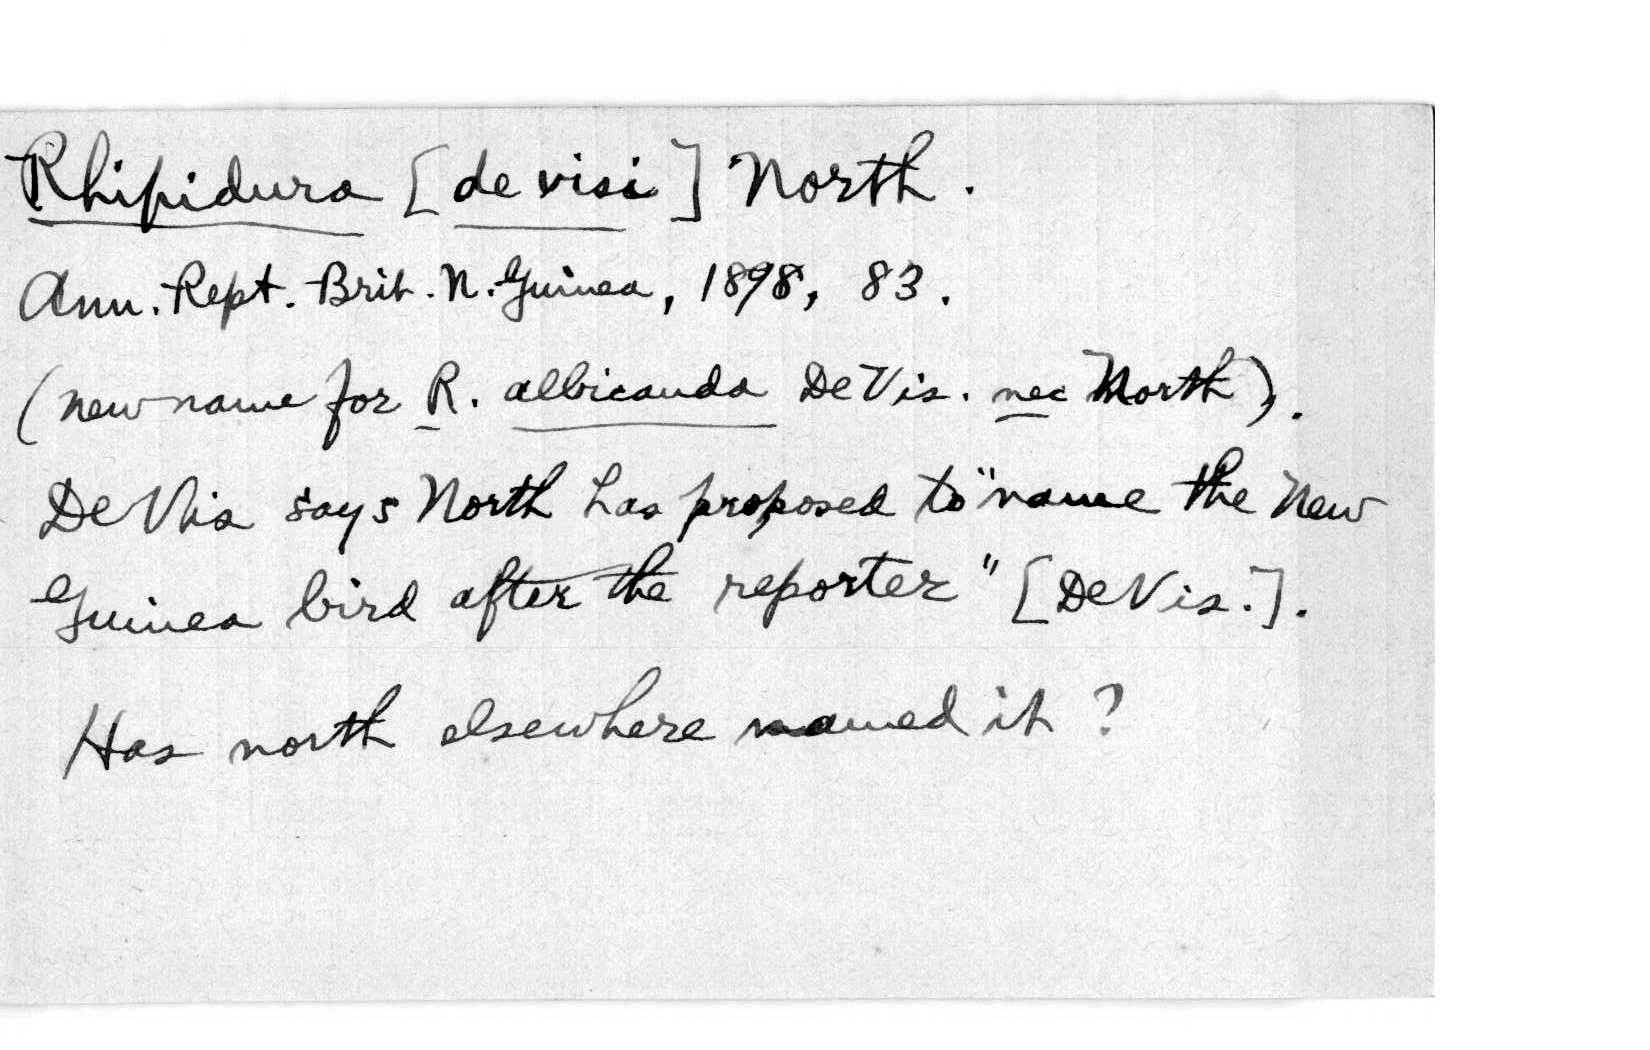 Rhipidura [de visi] North.
Ann. Rept. Brit. N. Guinea, 1898, 83.
(new name for R. albicauda De Vis. nec North).
De Vis says North has proposed to "name the New
Guinea bird after the reporter" [De Vis.].
Has north elsewhere named it?